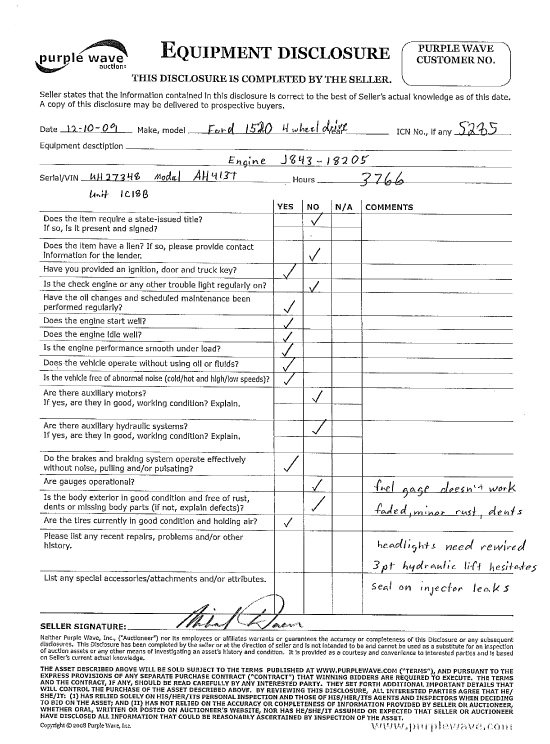 purple wave
auction
EQUIPMENT DISCLOSURE
PURPLE WAVE
CUSTOMER NO.
THIS DISCLOSURE IS COMPLETED BY THE SELLER.
Seller states that the information contained in this disclosure is correct to the best of Seller's actual knowledge as of this date.
A copy of this disclosure may be delivered to prospective buyers.
Date 12-10-09 Make, model Ford 1520 4 wheel drive ICN No., if any 5235
Equipment description
Engine J843-18205
Serial/VIN UH27348 model AH413T Hours 3766
Unit 1C18B
YES NO N/A COMMENTS
Does the item require a state-issued title?
If so, is it present and signed?
Does the item have a lien? If so, please provide contact
information for the lender.
Have you provided an ignition, door and truck key?
Is the check engine or any other trouble light regularly on?
Have the oil changes and scheduled maintenance been
performed regularly?
Does the engine start well?
Does the engine idle well?
Is the engine performance smooth under load?
Does the vehicle operate without using oil or fluids?
Is the vehicle free of abnormal noise (cold/hot and high/low speeds)?
Are there auxiliary motors?
If yes, are they in good, working condition? Explain.
Are there auxiliary hydraulic systems?
If yes, are they in good, working condition? Explain.
Do the brakes and braking system operate effectively
without noise, pulling and/or pulsating?
Are gauges operational? fuel gage doesn't work
Is the body exterior in good condition and free of rust,
dents or missing body parts (if not, explain defects)? faded, minor rust, dents
Are the tires currently in good condition and holding air?
Please list any recent repairs, problems and/or other
history.
headlights need rewired
3 pt hydraulic lift hesitates
List any special accessories/attachments and/or attributes.
seal on injector leaks
SELLER SIGNATURE:
Neither Purple Wave, Inc. ("Auctioneer") nor its employees or affiliates warrants or guarantees the accuracy or completeness of this Disclosure or any subsequent
disclosures. This Disclosure has been completed by the seller or at the direction of seller and is not intended to be and cannot be used as a substitute for an inspection
of auction assets or any other means of investigating an assets history and condition. It is provided as a courtesy and convenience to interested parties and is based
on Seller's current actual knowledge.
THE ASSET DESCRIBED ABOVE WILL BE SOLD SUBJECT TO THE TERMS PUBLISHED AT WWW.PURPLEWAVE.COM ("TERMS"), AND PURSUANT TO THE
EXPRESS PROVISIONS OF ANY SEPARATE PURCHASE CONTRACT ("CONTRACT") THAT WINNING BIDDERS ARE REQUIRED TO EXECUTE. THE TERMS
AND THE CONTRACT, IF ANY, SHOULD BE READ CAREFULLY BY ANY INTERESTED PARTY. THEY SET FORTH ADDITIONAL IMPORTANT DETAILS THAT
WILL CONTROL THE PURCHASE OF THE ASSET DESCRIBED ABOVE. BY REVIEWING THIS DISCLOSURE, ALL INTERESTED PARTIES AGREE HE/
SHE/IT: (I) HAS RELIED SOLELY ON HIS/HER/ITS PERSONAL INSPECTION AND THOSE OF HIS/HER/ITS AGENTS AND INSPECTORS WHEN DECIDING
TO BID ON THE ASSET; AND (II) HAS NOT RELIED ON THE ACCURACY OR COMPLETENESS OF INFORMATION PROVIDED BY SELLER OR AUCTIONEER,
WHETHER ORAL, WRITTEN OR POSTED ON AUCTIONEER'S WEBSITE, NOR HAS HE/SHE/IT ASSUMED OR EXPECTED THAT SELLER OR AUCTIONEER
HAVE DISCLOSED ALL INFORMATION THAT COULD BE REASONABLY ASCERTAINED BY INSPECTION OF THE ASSET.
Copyright © 2008 Purple Wave, Inc.
www.purplewave.com